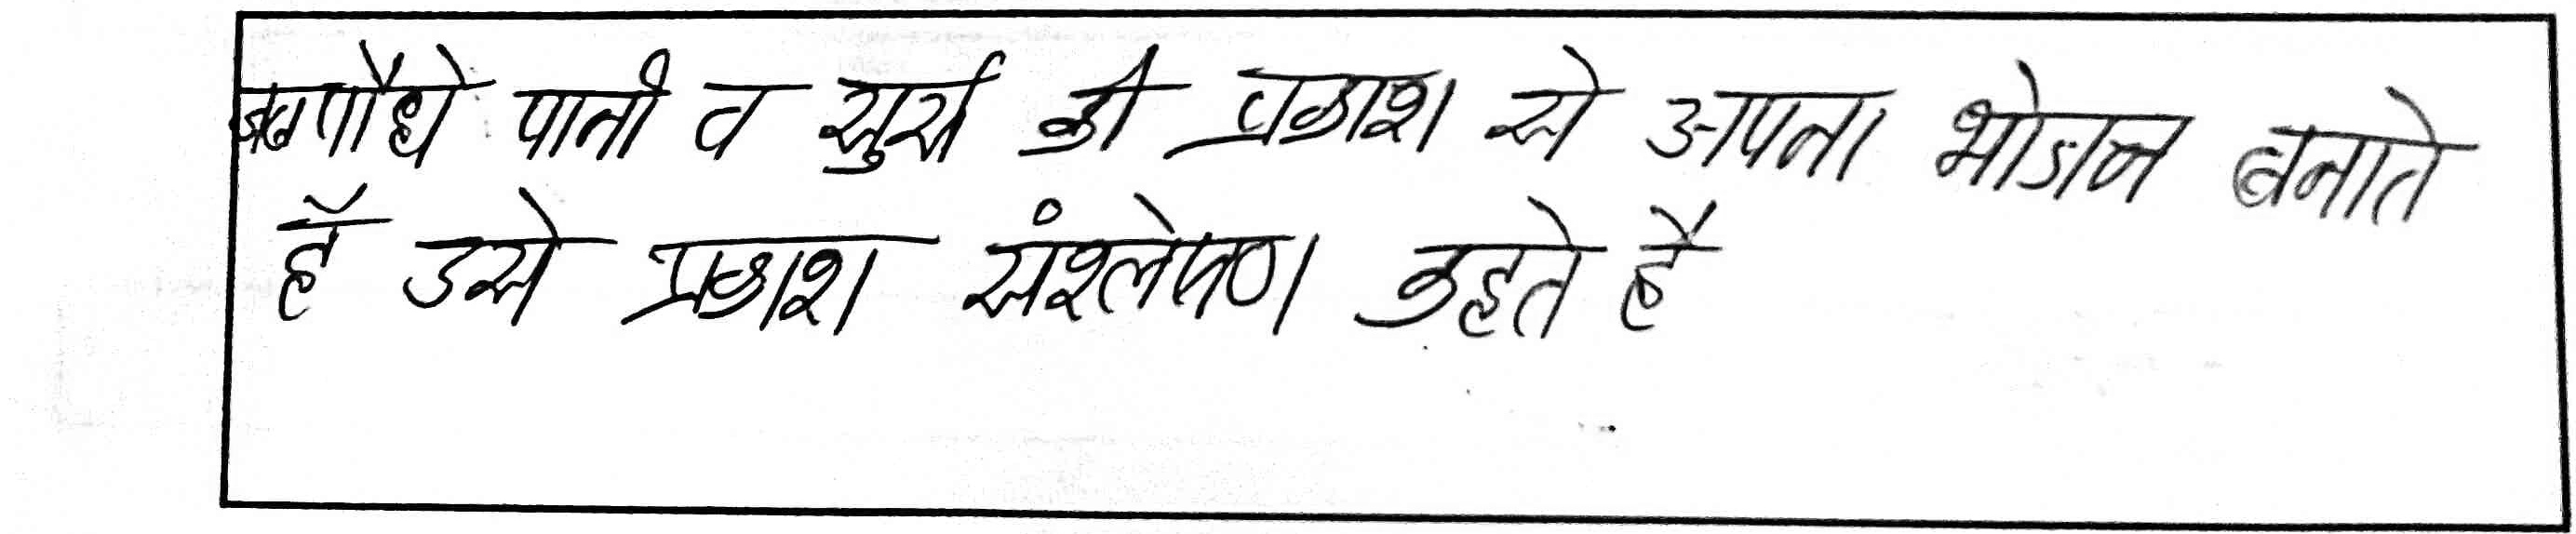 जब पौधे पानी व सुर्य की प्रकाश से अपना भोजन बनाते
है उसे प्रकाश संश्लेषण कहते है